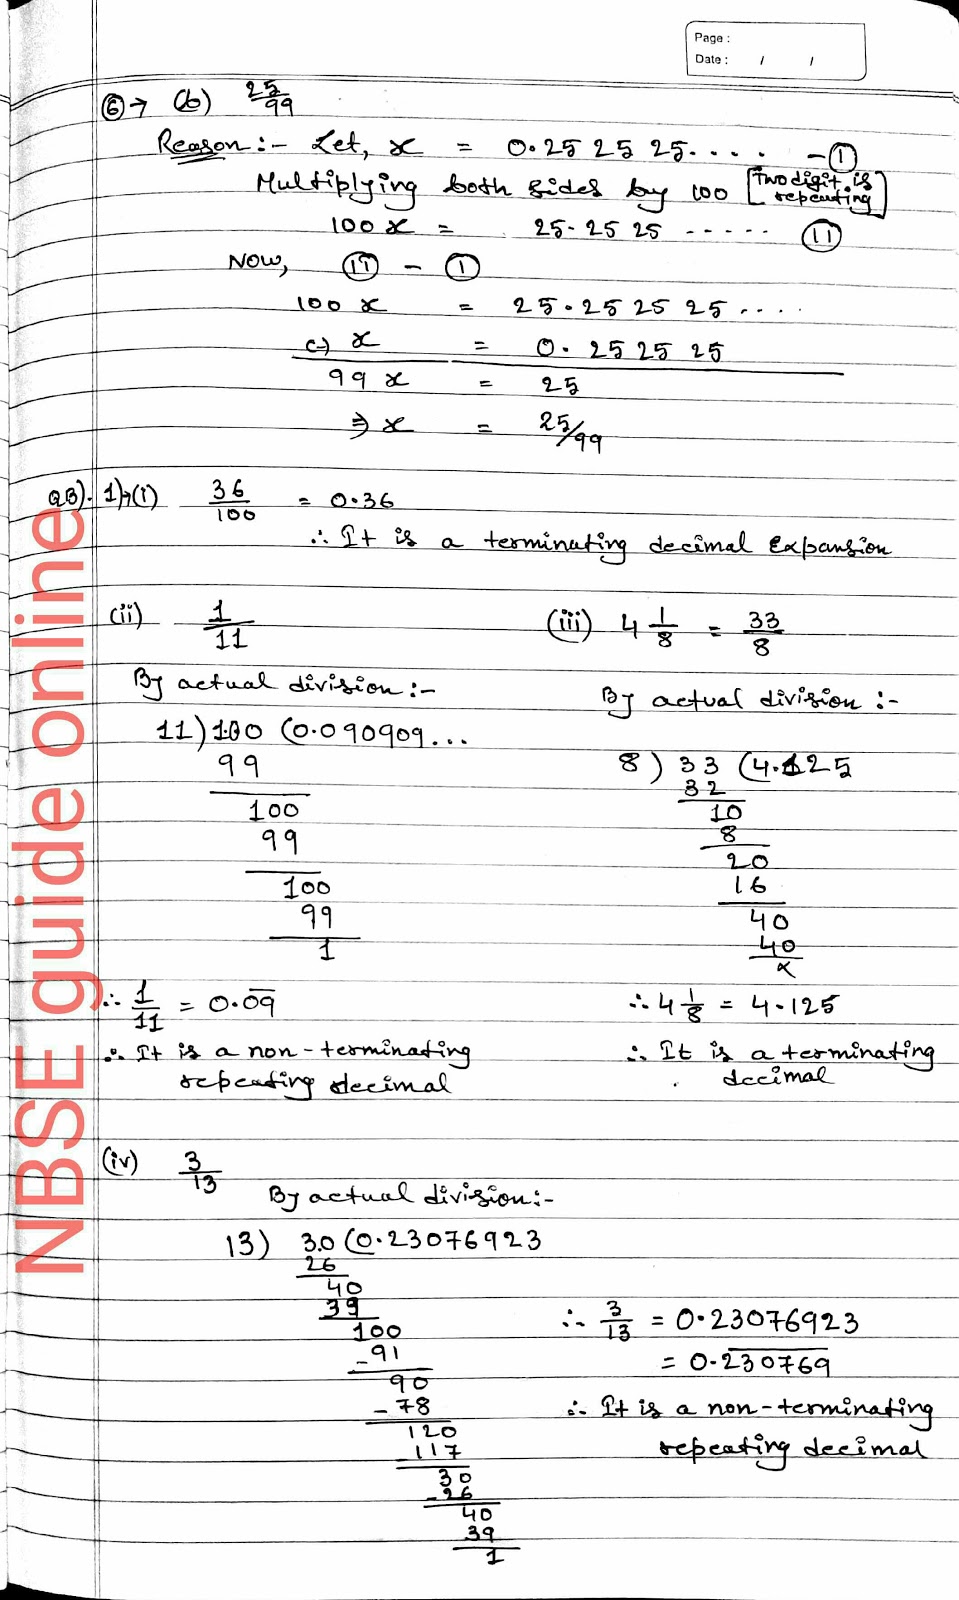 Page :
Date : / /
⑥→ (b) 25/99
Reason :- Let, x = 0.25 25 25.... -①
Multiplying both sides by 100 [Two digit is repeating]
100 x = 25.25 25 ..... ⑪
Now, ⑪ - ①
100 x = 25.25 25 25 ....
(-) x = 0.25 25 25
99 x = 25
⇒ x = 25/99
Q3). 1)→(i) 36/100 = 0.36
∴ It is a terminating decimal Expansion
(ii) 1/11
By actual division :-
11) 1.00 (0.090909...
99
100
99
100
99
1
∴ 1/11 = 0.0̅9̅
∴ It is a non-terminating
repeating decimal
(iii) 4 1/8 = 33/8
By actual division :-
8 ) 33 (4.125
32
10
8
20
16
40
40
x
∴ 4 1/8 = 4.125
∴ It is a terminating
decimal
(iv) 3/13
By actual division:-
13) 3.0 (0.23076923
26
40
39
100
-91
90
-78
120
117
30
-26
40
39
1
∴ 3/13 = 0.23076923
= 0.2̅3̅0̅7̅6̅9̅
∴ It is a non-terminating
repeating decimal
NBSE guide online